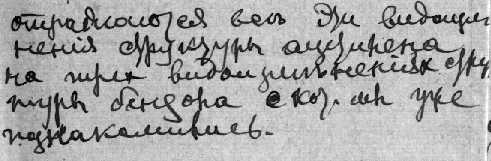 отражаются все эти видоизме
нения структуры
на трех видоизменениях струк
туры бендора с кот. мы уже
познакомились.